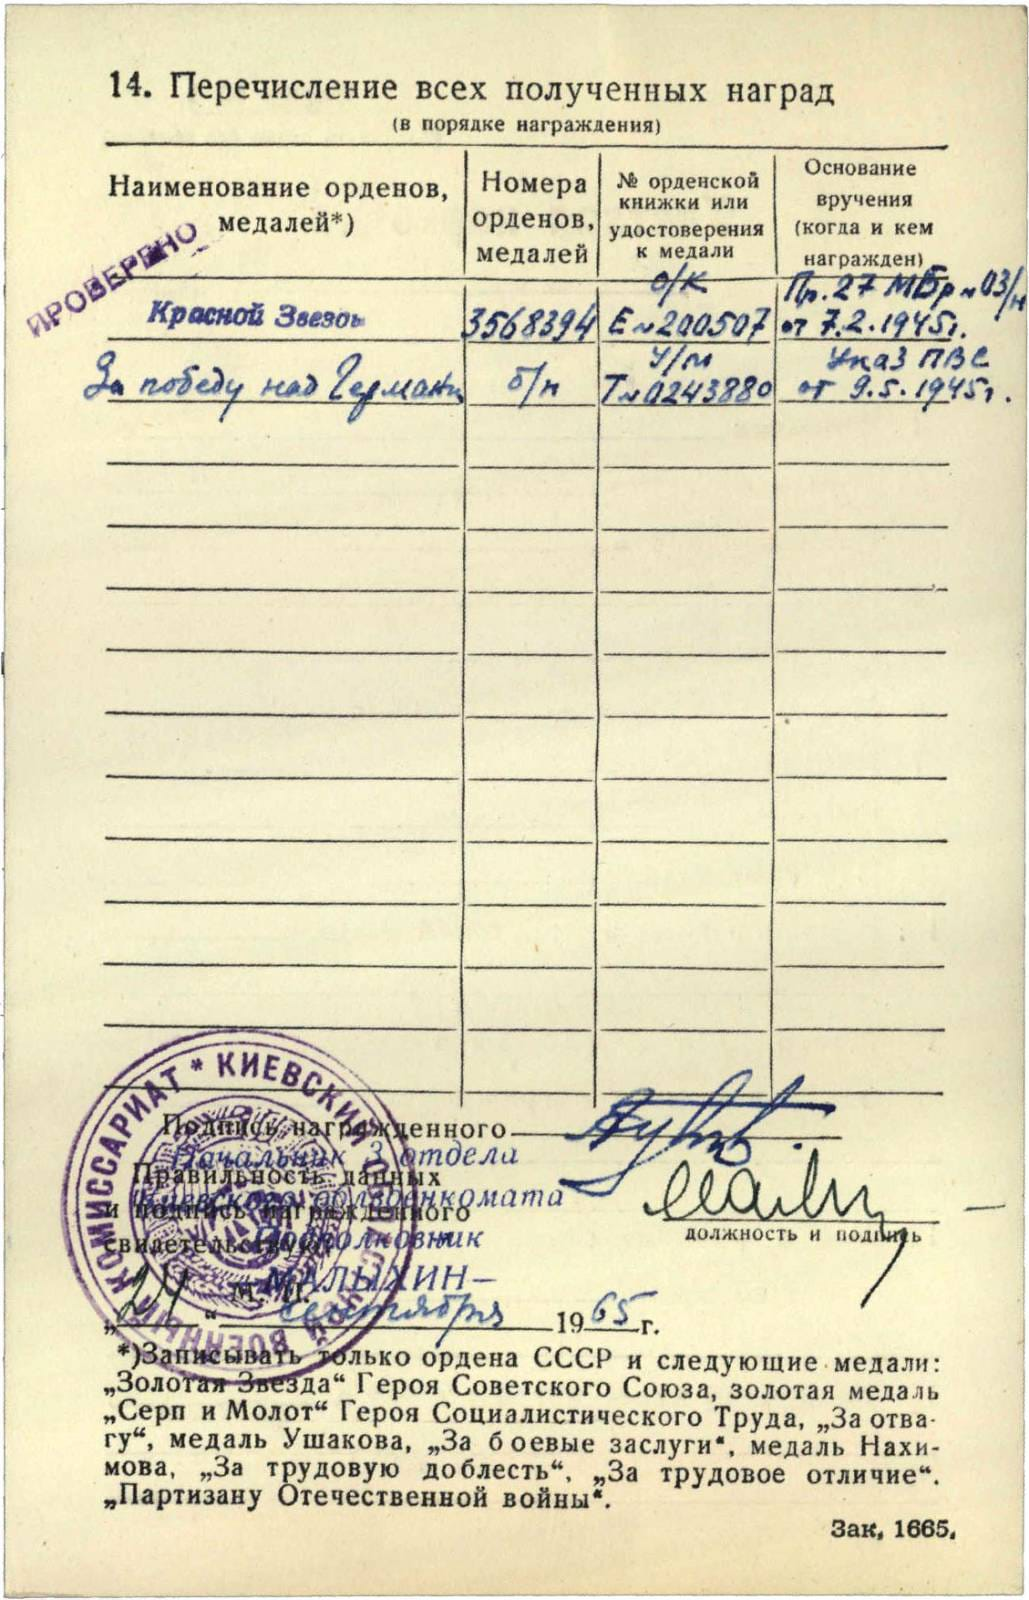 14. Перечисление всех полученных наград
(в порядке награждения)
Наименование орденов,
медалей*)
Номера
орденов,
медалей
№ орденской
книжки или
удостоверения
к медали
Основание
вручения
(когда и кем
награжден)
ПРОВЕРЕНО
Красной Звезды
3568394
о/к
Е № 200507
Пр. 27 МБр № 03/н
от 7.2.1945г.
За победу над Германи
б/н
У/м
Т № 0243880
Указ ПВС
от 9.5.1945г.
КИЕВСКИЙ
ВОЕННЫЙ КОМИССАРИАТ *
Подпись награжденного
Начальник 3 отдела
Правильность данных
Киевского облвоенкомата
и подпись награжденного
Подполковник
свидетельствую
должность и подпись
МАЛЫХИН-
М. П.
„24“ сентября 1965г.
*)Записывать только ордена СССР и следующие медали:
„Золотая Звезда“ Героя Советского Союза, золотая медаль
„Серп и Молот“ Героя Социалистического Труда, „За отва-
гу“, медаль Ушакова, „За боевые заслуги“, медаль Нахи-
мова, „За трудовую доблесть“, „За трудовое отличие“.
„Партизану Отечественной войны“.
Зак. 1665.